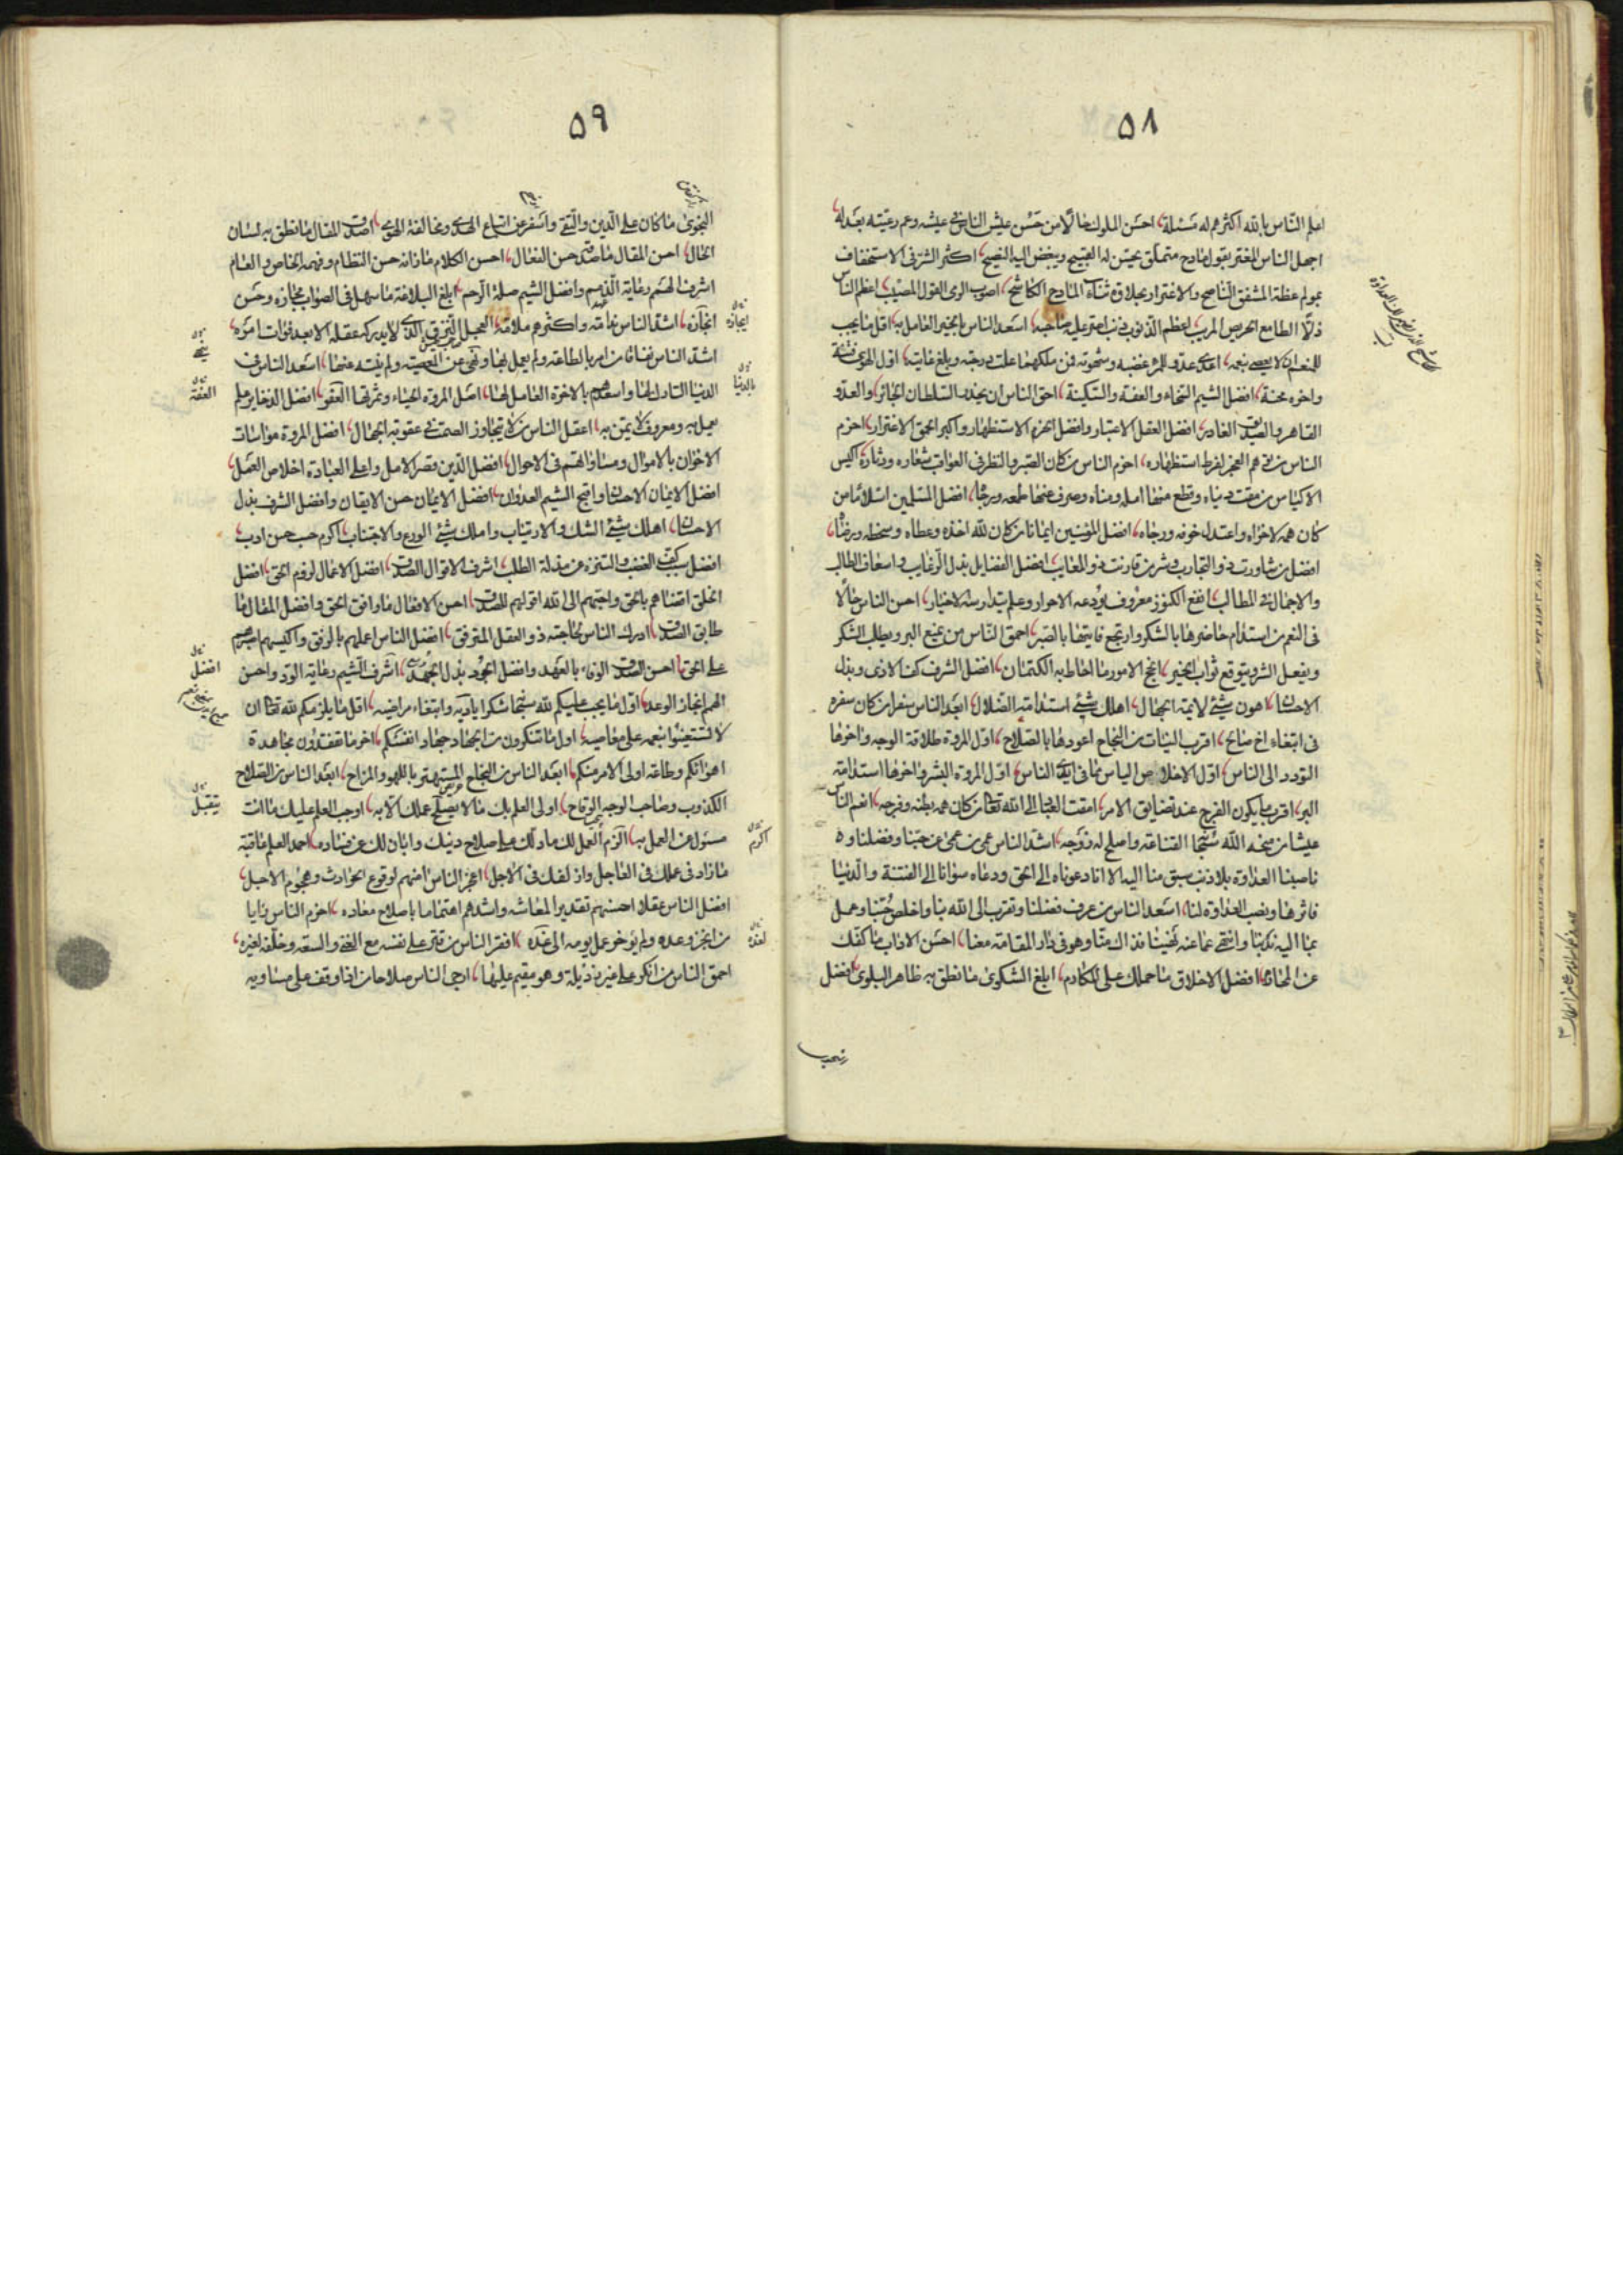 ۵۸
اعلم النّاس بالله اكثرهم له مسئلة، احسن الملوك حالا من حسن عيش الناس في عيشه وعم رعيّته بعدله،
اجهل الناس المغتر بقول مادح متملّق يحسّن له القبيح ويبغض اليه النصيح، اكثر الشر في الاستخفاف
بمولم عظة المشفق الناصح والاغترار بحلاوة ثناء المادح الكاشح، اصوب الرمي القول المصيب، اعظم الناس
ذلّا الطامع الحريص المريب، اعظم الذنوب ذنب اصر عليه صاحبه، اسعد الناس بالخير العامل به، اقل ما يجب
للمنعم ان لا يعصى بنعمه، اعدى عدو للمرء غضبه وشهوته فمن ملكهما علت درجته وبلغ غايته، اول الهوى فتنة
واخره محنة، افضل الشيم السخاء والعفة والسكينة، احق الناس ان يحذر السلطان الجائر والعدو
القاهر والصديق الغادر، افضل العقل الاعتبار وافضل الحزم الاستظهار واكبر الحمق الاغترار، احزم
الناس من توهم العجز لفرط استظهاره، احزم الناس من كان الصبر والنظر في العواقب شعاره ودثاره، اكيس
الاكياس من مقت دنياه وقطع منها امله ومناه وصرف عنها طمعه ورجاه، افضل المسلمين اسلاما من
كان همه لاخراه واعتدل خوفه ورجاه، افضل المؤمنين ايمانا من كان لله اخذه وعطاه وسخطه ورضاه،
افضل من شاورت ذو التجارب وشر من قارنت ذو المعايب، افضل الفضايل بذل الرغايب واسعاف الطالب
والاجمال في المطالب، انفع الكنوز معروف يودعه الاحرار وعلم يتدارسه الاخيار، احسن الناس حالا
في النعم من استدام حاضرها بالشكر وارتجع فايتها بالصبر، احمق النّاس من يمنع البر ويطلب الشكر
ويفعل الشر ويتوقع ثواب الخير، انجح الامور ما احاط به الكتمان، افضل الشرف كف الاذى وبذل
الاحسان، اهون شيئ لايمة الجهال، اهلك شيئ استدامة الضلال، ابعد الناس سفرا من كان سفره
في ابتغاء اخ صالح، اقرب النيات من النجاح اعودها بالصلاح، اول المروة طلاقة الوجه واخرها
التودد الى الناس، اول الاخلاص الياس مما في ايدى الناس، اول المروة البشر واخرها استدامة
البر، اقرب ما يكون الفرج عند تضايق الامر، امقت العباد الى الله تعالى من كان همه بطنه وفرجه، انعم الناس
عيشا من منحه الله سبحانه القناعة واصلح له زوجه، اشد الناس عمى من عمى عن حبنا وفضلنا و
ناصبنا العداوة بلا ذنب سبق منا اليه الا انا دعوناه الى الحق ودعاه سوانا الى الفتنة والدنيا
فاثرها ونصب العداوة لنا، اسعد الناس من عرف فضلنا وتقرب الى الله بنا واخلص حبنا وعمل
بما اليه ندبنا وانتهى عما عنه نهينا فذاك منّا وهو في دار المقامة معنا، احسن الاداب ما كفك
عن المحارم، افضل الاخلاق ما حملك على المكارم، ابلغ الشكوى ما نطق به ظاهر البلوى، افضل
۵۹
النجوى ما كان على الدين والتقى واسفر عن اتباع الهدى ومخالفة الهوى، اصدق المقال ما نطق به لسان
الحال، احسن المقال ما صدقه حسن الفعال، احسن الكلام ما زانه حسن النظام وفهمه الخاص والعام
اشرف الهمم رعاية الذمم وافضل الشيم صلة الرحم، ابلغ البلاغة ما سهل في الصواب مجازه وحسن
ايجازه، اشد الناس ندامة واكثرهم ملامة العجل النزق الذى لا يدركه عقله الا بعد فوات امره،
اشد الناس نفاقا من امر بالطاعة ولم يعمل بها ونهى عن المعصية ولم ينته عنها، اسعد الناس في
الدنيا التارك لها واسعدهم بالاخرة العامل لها، اصل المروة الحياء وثمرتها العفو، افضل الذخاير علم
يعمل به ومعروف لا يمن به، اعقل الناس من لا يتجاوز الصمت في عقوبة الجهال، افضل المروة مواسات
الاخوان بالاموال ومساواتهم في الاحوال، افضل الدين قصر الامل واعلى العبادة اخلاص العمل،
افضل الايمان الاحسان واقبح الشيم العدوان، افضل الايمان حسن الايقان وافضل الشرف بذل
الاحسان، اهلك شيئ الشك والارتياب واملك شيئ الورع والاجتناب، اكرم حسب حسن ادب،
الغضب والتنزه عن مذلة الطلب، اشرف الاقوال الصدق، افضل الاعمال لزوم الحق، افضل
الخلق اقضاهم بالحق واحبهم الى الله اقولهم للصدق، احسن الافعال ما وافق الحق وافضل المقال ما
طابق الصدق، ادرك الناس لحاجته ذو العقل المترفق، افضل الناس اعملهم بالرفق واكيسهم اصبرهم
على الحق، احسن الصدق الوفاء بالعهد وافضل الجود بذل الجهد، اشرف الشيم رعاية الود واحسن
الهمم انجاز الوعد، اول ما يجب عليكم لله سبحانه شكر اياديه وابتغاء مراضيه، اقل ما يلزمكم لله تعالى ان
لا تستعينوا بنعمه على معاصيه، اول ما تنكرون من الجهاد جهاد انفسكم، اخر ما تفقدون مجاهدة
اهوائكم وطاعة اولى الامر منكم، ابعد الناس من النجاح المستهتر باللهو والمزاح، ابعد الناس من الصلاح
الكذوب وصاحب الوجه الوقاح، اولى العلم بك ما لا يصلح عملك الا به، اوجب العلم عليك ما انت
مسئول عن العمل به، الزم العمل لك ما دلك على صلاح دينك وابان لك عن فساده، احمد العلم عاقبة
ما زاد في عملك في العاجل وازلفك في الاجل، اعجز الناس امنهم لوقوع الحوادث وهجوم الاجل،
افضل الناس عقلا احسنهم تقديرا لمعاشه واشدهم اهتماما باصلاح معاده، احزم الناس رايا
من انجز وعده ولم يوخر عمل يومه الى غده، افقر الناس من قتر على نفسه مع الغنى والسعة وخلّفه لغيره،
احمق الناس من انكر على غيره رذيلة وهو مقيم عليها، ارجى الناس صلاحا من اذا وقف على مساويه
ايجازه
بالدنيا
العفة
افضل
يتقبل
اكرم
لغده